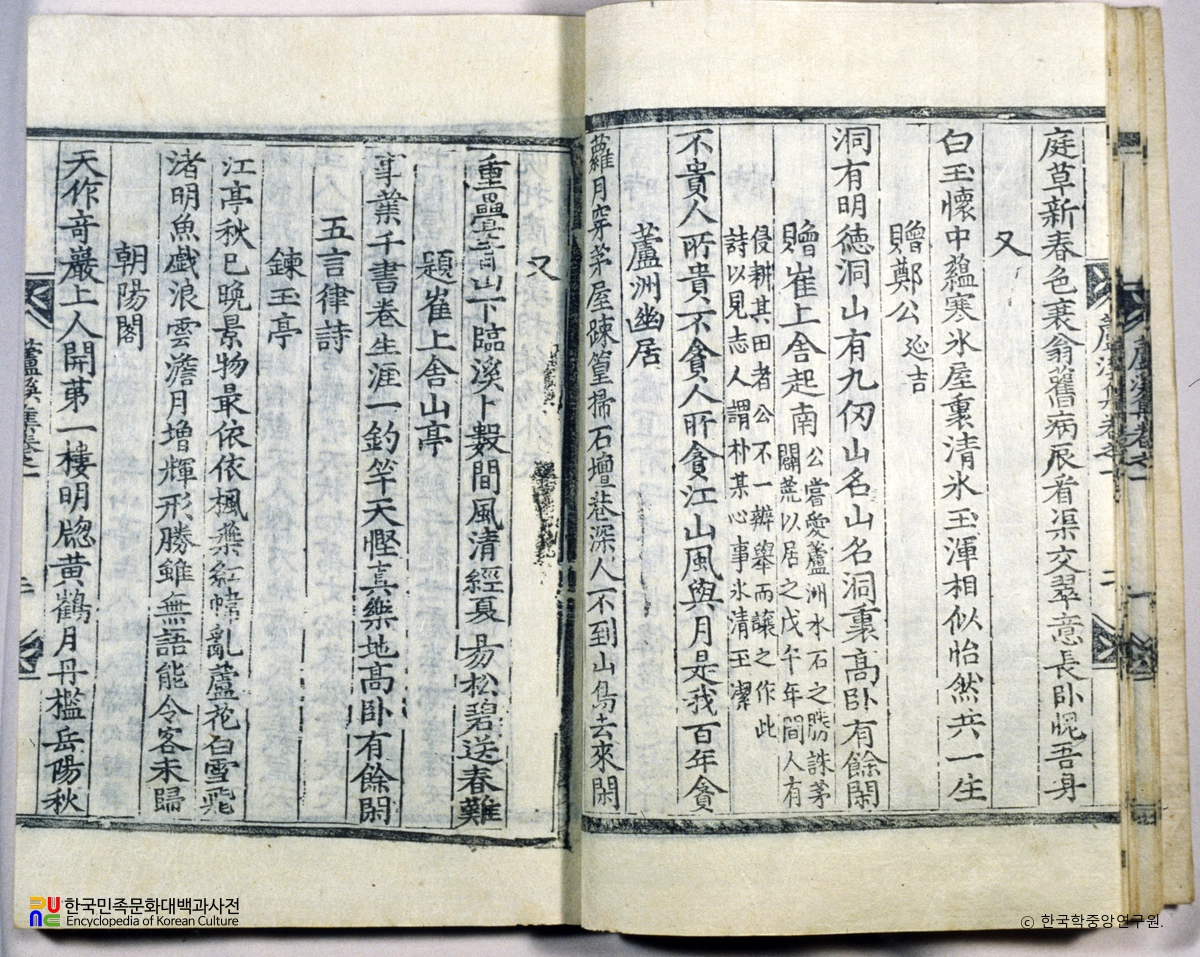 庭草新春色衰翁舊病辰看渠交翠意長卧悅吾身
又
白玉懷中蘊寒氷屋裏清氷玉渾相似怡然共一生
贈鄭公 延吉
洞有明德洞山有九仞山名山名洞裏高卧有餘閑
贈崔上舍起南 公嘗愛蘆洲水石之勝誅茅
闢荒以居之戊午年間人有
侵耕其田者公不一辦舉而讓之作此
詩以見志人謂朴某心事氷清玉潔
不貴人所貴不貪人所貪江山風與月是我百年貪
蘆洲幽居
蘿月穿茅屋疎篁掃石壇巷深人不到山鳥去來閑
又
重疊靑山下臨溪卜數間風清經夏易松碧送春難
題崔上舍山亭
事業千書卷生涯一釣竿天慳眞樂地高卧有餘閑
五言律詩
鍊玉亭
江亭秋已晩景物最依依楓葉紅幃亂蘆花白雪飛
渚明魚戱浪雲澹月增輝形勝雖無語能令客未歸
朝陽閣
天作奇巖上人開第一樓明牕黃鶴月丹檻岳陽秋
蘆溪集卷之一
二
蘆溪集卷之一
一
한국민족문화대백과사전
Encyclopedia of Korean Culture
ⓒ 한국학중앙연구원.